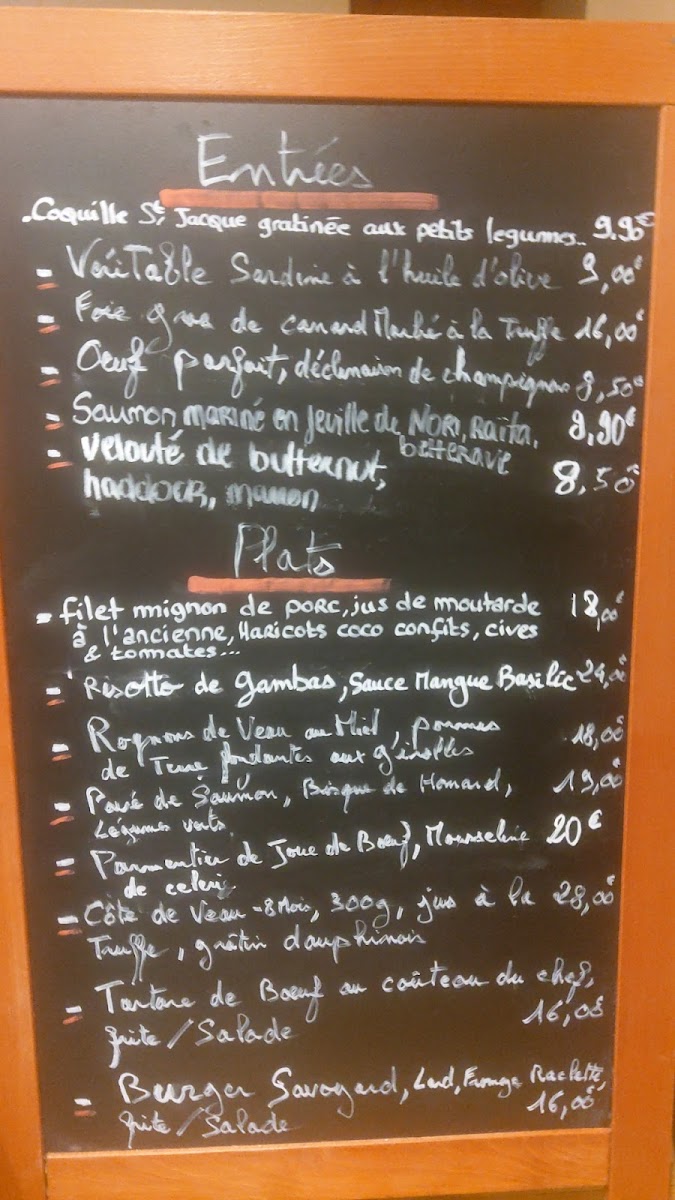 Entrées
.Coquille St Jacque gratinée aux petits legumes.. 9.90€
- VériTable Sardine à l'huile d'olive 9,00€
- Foie gras de canard Marbré à la Truffe 16,00€
- Oeuf parfait, déclinaison de champignons 9,50€
- Saumon mariné en feuille de NORI, Raïta, 9,90€
betterave
- velouté de butternut, 8,50€
haddock, marron
Plats
- filet mignon de porc, jus de moutarde 18,00€
à l'ancienne, Haricots coco confits, cives
& tommates...
- Risotto de gambas, Sauce Mangue Basilic 24,00€
- Rognons de Veau au Miel, pommes 18,00€
de Terre fondantes aux girolles
- Pavé de Saumon, Bisque de Homard, 19,00€
Légumes verts
- Parmentier de Joue de Bœuf, Mousseline 20€
de celeri
- Côte de Veau -8 Mois, 300g, jus à la 28,00€
Truffe, gratin dauphinois
- Tartare de Bœuf au coûteau du chef,
frite / Salade 16,00€
- Burger Savoyard, Lard, Fromage Raclette,
frite / Salade 16,00€